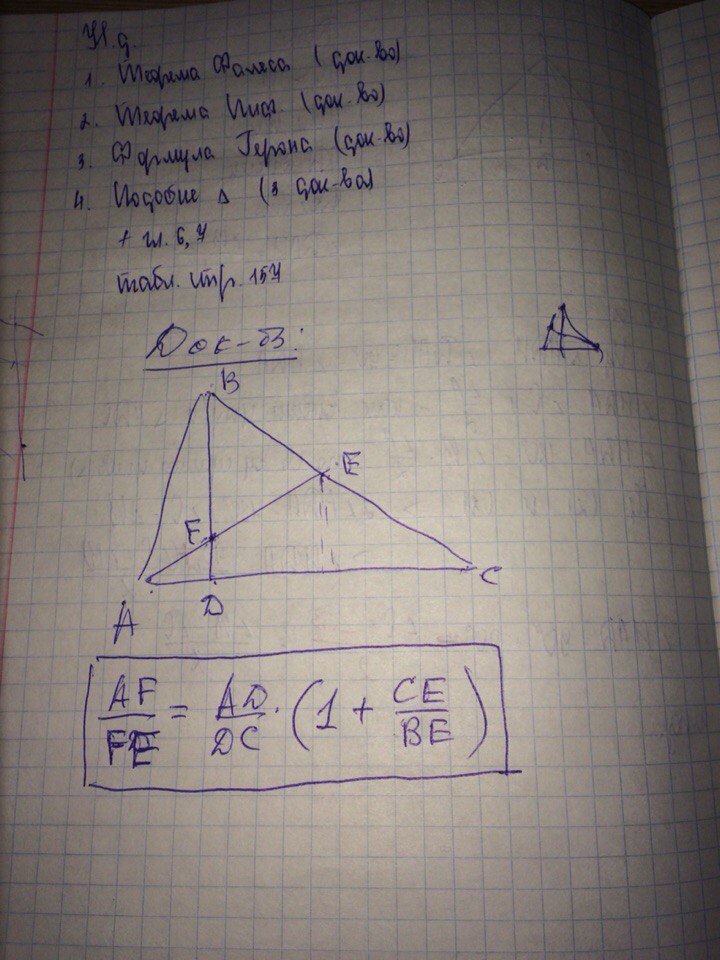 1. Теорема Фалеса (док-во)
2. Теорема Пиф. (док-во)
3. Формула Герона (док-во)
4. Подобие Δ (3 док-ва)
+ гл. 6, 7
табл. стр. 157
Док-ть:
B
E
F
A
D
C
AF/FE = AD/DC · (1 + CE/BE)